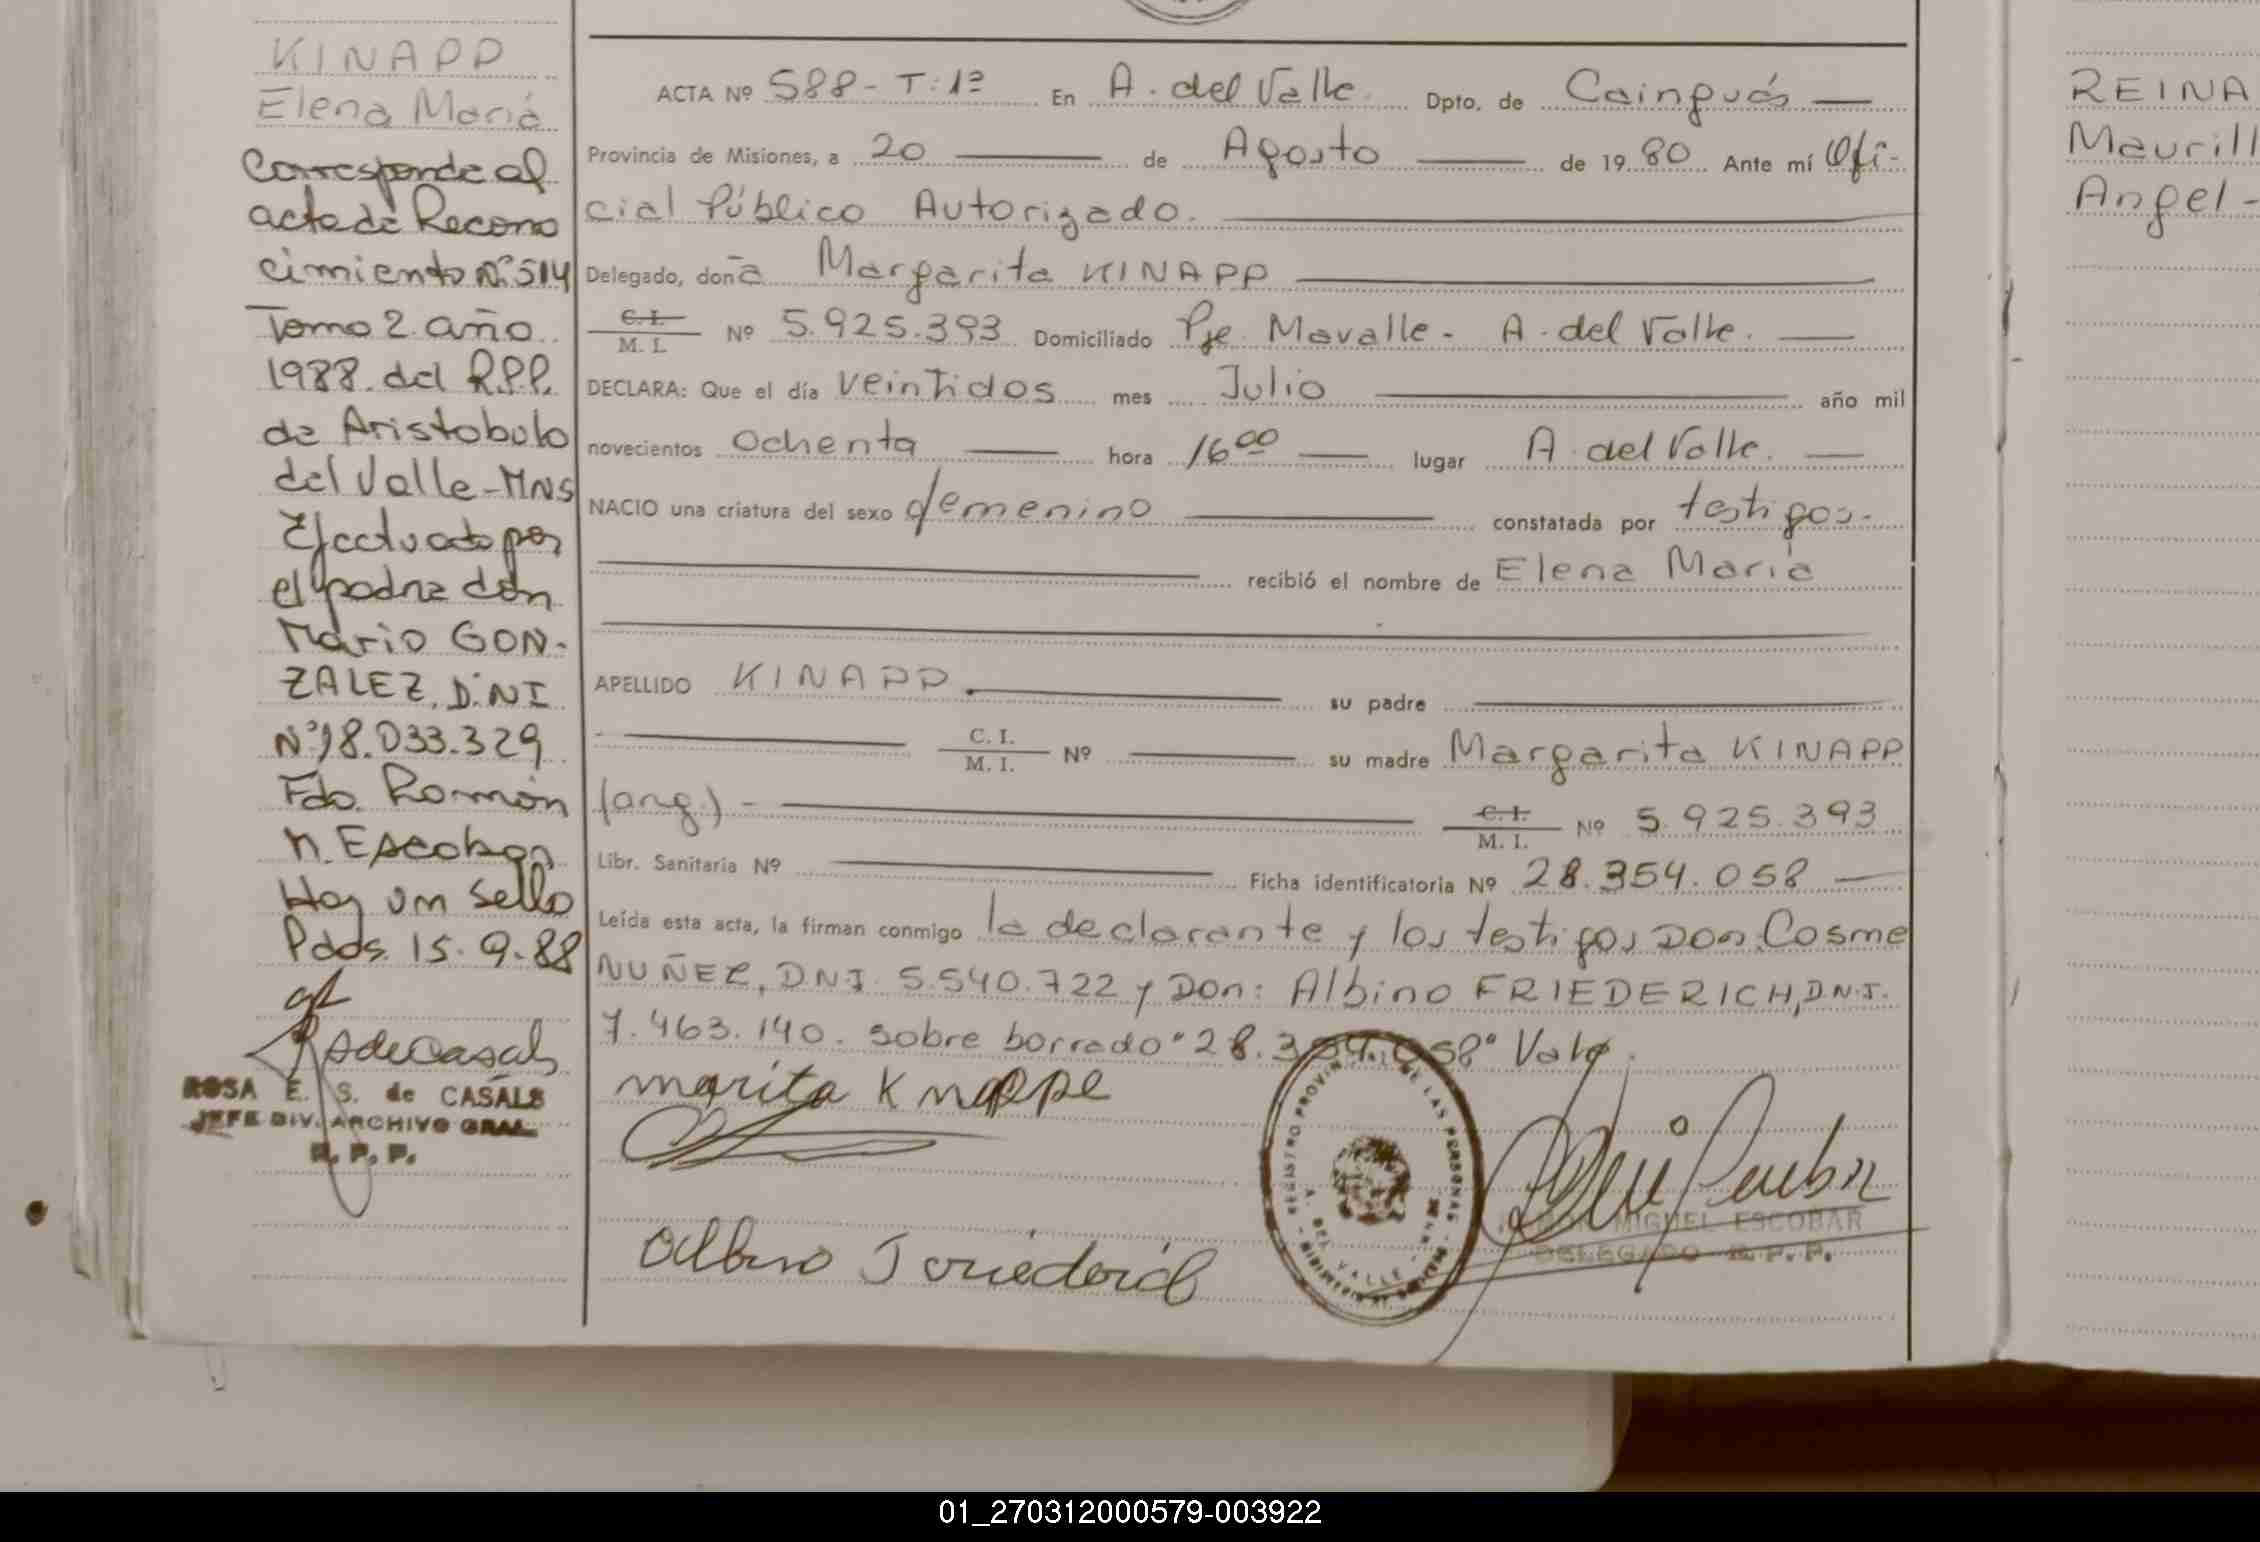 KINAPP
Elena María
Corresponde al
acta de Recono
cimiento Nº 514
Tomo 2 año
1988 del R.P.P.
de Aristobulo
del Valle-MNS
Efectuado por
el padre don
Mario GON-
ZALEZ, D.NI
Nº 18.033.329
Fdo. Ramón
M. Escobar
Hay un sello
Pdas. 15.9.88
ROSA E. S. de CASALS
JEFE DIV. ARCHIVO GRAL.
R. P. P.
ACTA Nº 588- T: 1º En A. del Valle Dpto. de Cainguás
Provincia de Misiones, a 20 de Agosto de 1980 Ante mí Ofi-
cial Público Autorizado.
Delegado, doña Margarita KINAPP
C. I. M. I. Nº 5.925.393 Domiciliado Pje Mavalle - A. del Valle.
DECLARA: Que el día veintidos mes Julio año mil
novecientos ochenta hora 16 00 lugar A. del Valle.
NACIO una criatura del sexo femenino constatada por testigos.
recibió el nombre de Elena María
APELLIDO KINAPP su padre
C. I. M. I. Nº su madre Margarita KINAPP
(arg.) - C. I. M. I. Nº 5.925.393
Libr. Sanitaria Nº Ficha identificatoria Nº 28.354.058
Leída esta acta, la firman conmigo la declarante y los testigos Don Cosme
NUÑEZ, DNI. 5.540.722 y Don: Albino FRIEDERICH, D.N.I.
7.463.140. sobre borrado "28.354.058" Vale.
marita Knappe
Albino Friederich
REGISTRO PROVINCIAL DE LAS PERSONAS
A. DEL VALLE
RAMON MIGUEL ESCOBAR
DELEGADO R. P. P.
REINA
Maurill
Angel -
01_270312000579-003922